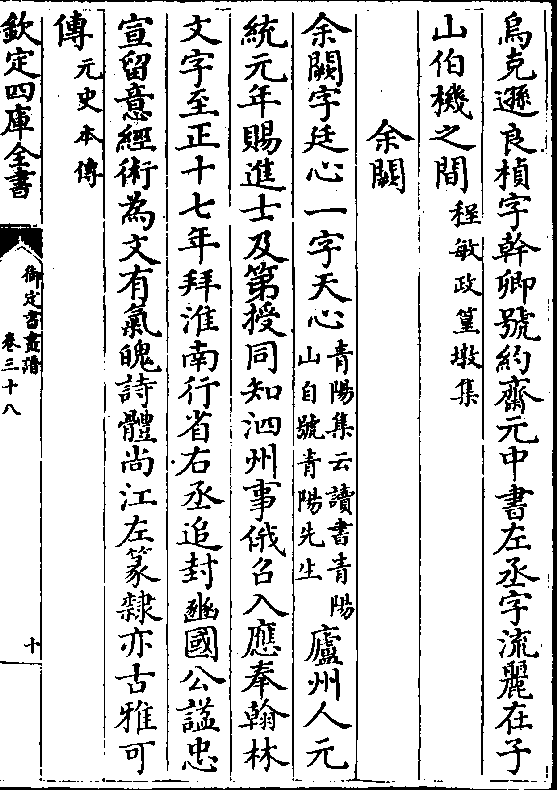 烏克遜良楨字幹卿號約齋元中書左丞字流麗在子
山伯機之間程敏政篁墩集
余闕
余闕字廷心一字天心青陽集云讀書青陽山自號青陽先生廬州人元
統元年賜進士及第授同知泗州事俄召入應奉翰林
文字至正十七年拜淮南行省右丞追封豳國公諡忠
宣留意經術為文有氣魄詩體尚江左篆隸亦古雅可
傳元史本傳
欽定四庫全書
御定書畫譜
卷三十八
十